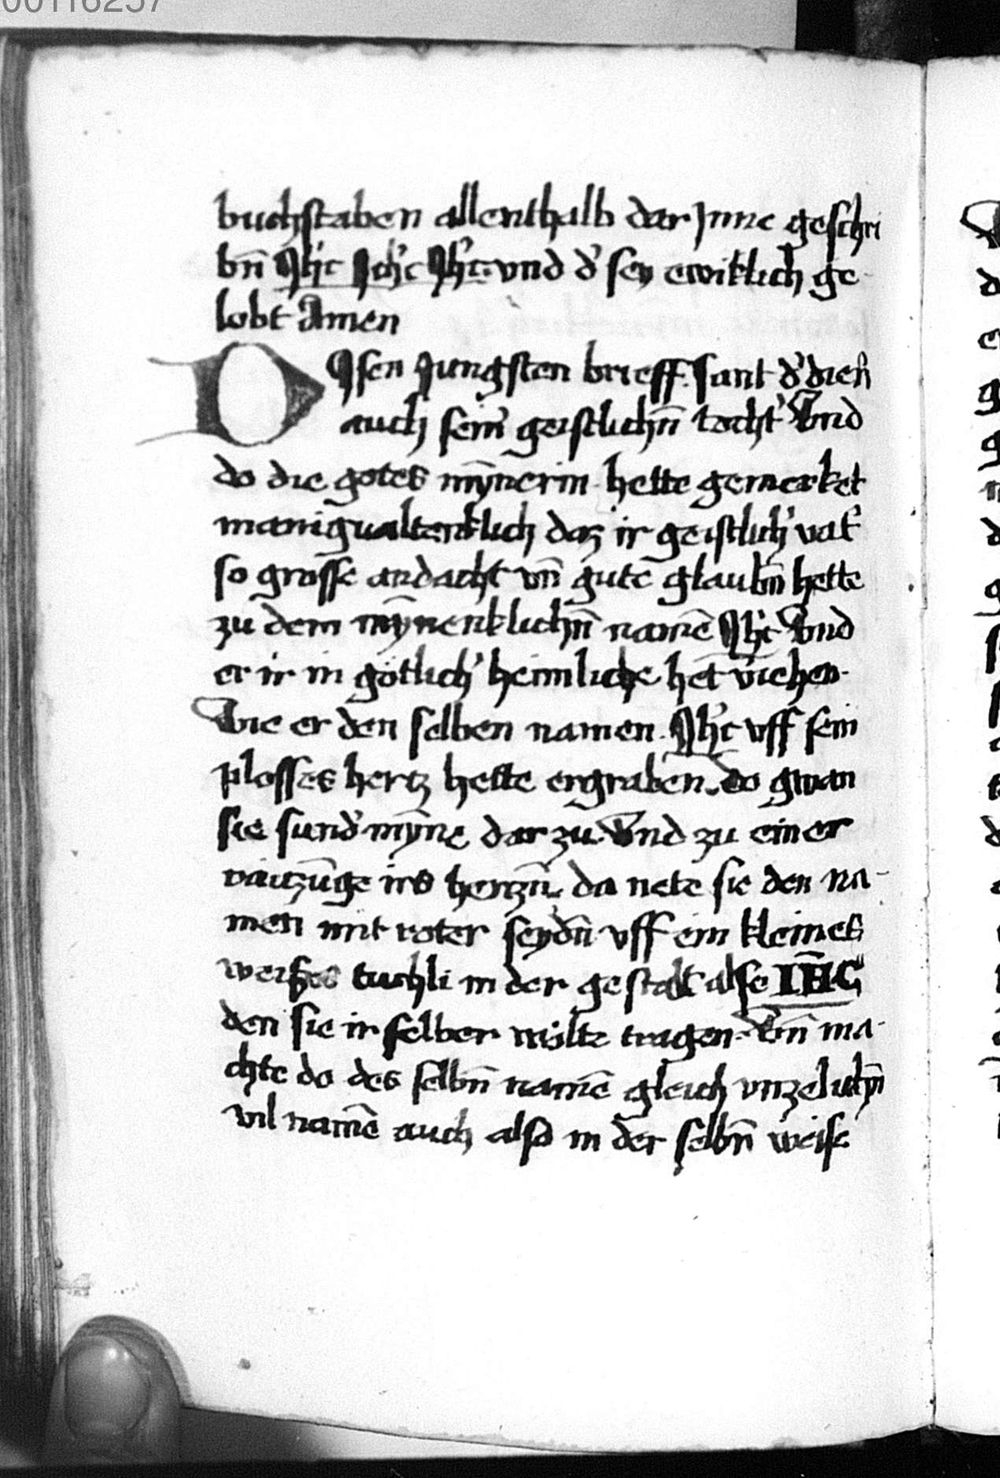 00116257
buchstaben allenthalb dar Jnne geschri
bn̄ Jh'c Jch'c Jh'c vnd d' sey ewiklich ge-
lobt Amen
DJsen Jungsten brieff sant d' dien̄
auch sein' geistlichn̄ tocht' Vnd
do die gotes mȳnerin hette gemerket
manigualtenklich daz ir geistlich' vat'
so grosse andacht vn̄ gutē glaubn̄ hette
zu dem mȳnenklichn̄ namē Jh'c Vnd
er ir in götlich' heimliche het v'iehen
Wie er den selben namen Jh'c vff sein
plosses hertz hette ergraben do gwan
sie sund' mȳne dar zu Vnd zu einer
irs hertzn̄ da nete sie den na-
men mit roter seydn̄ vff ein kleines
weisses tuchli in der gestalt alse IHC
den sie ir selber wölte tragen Vn̄ ma-
chte do des selbn̄ namē gleich vnzelichn̄
vil namē auch also in der selbn̄ weise